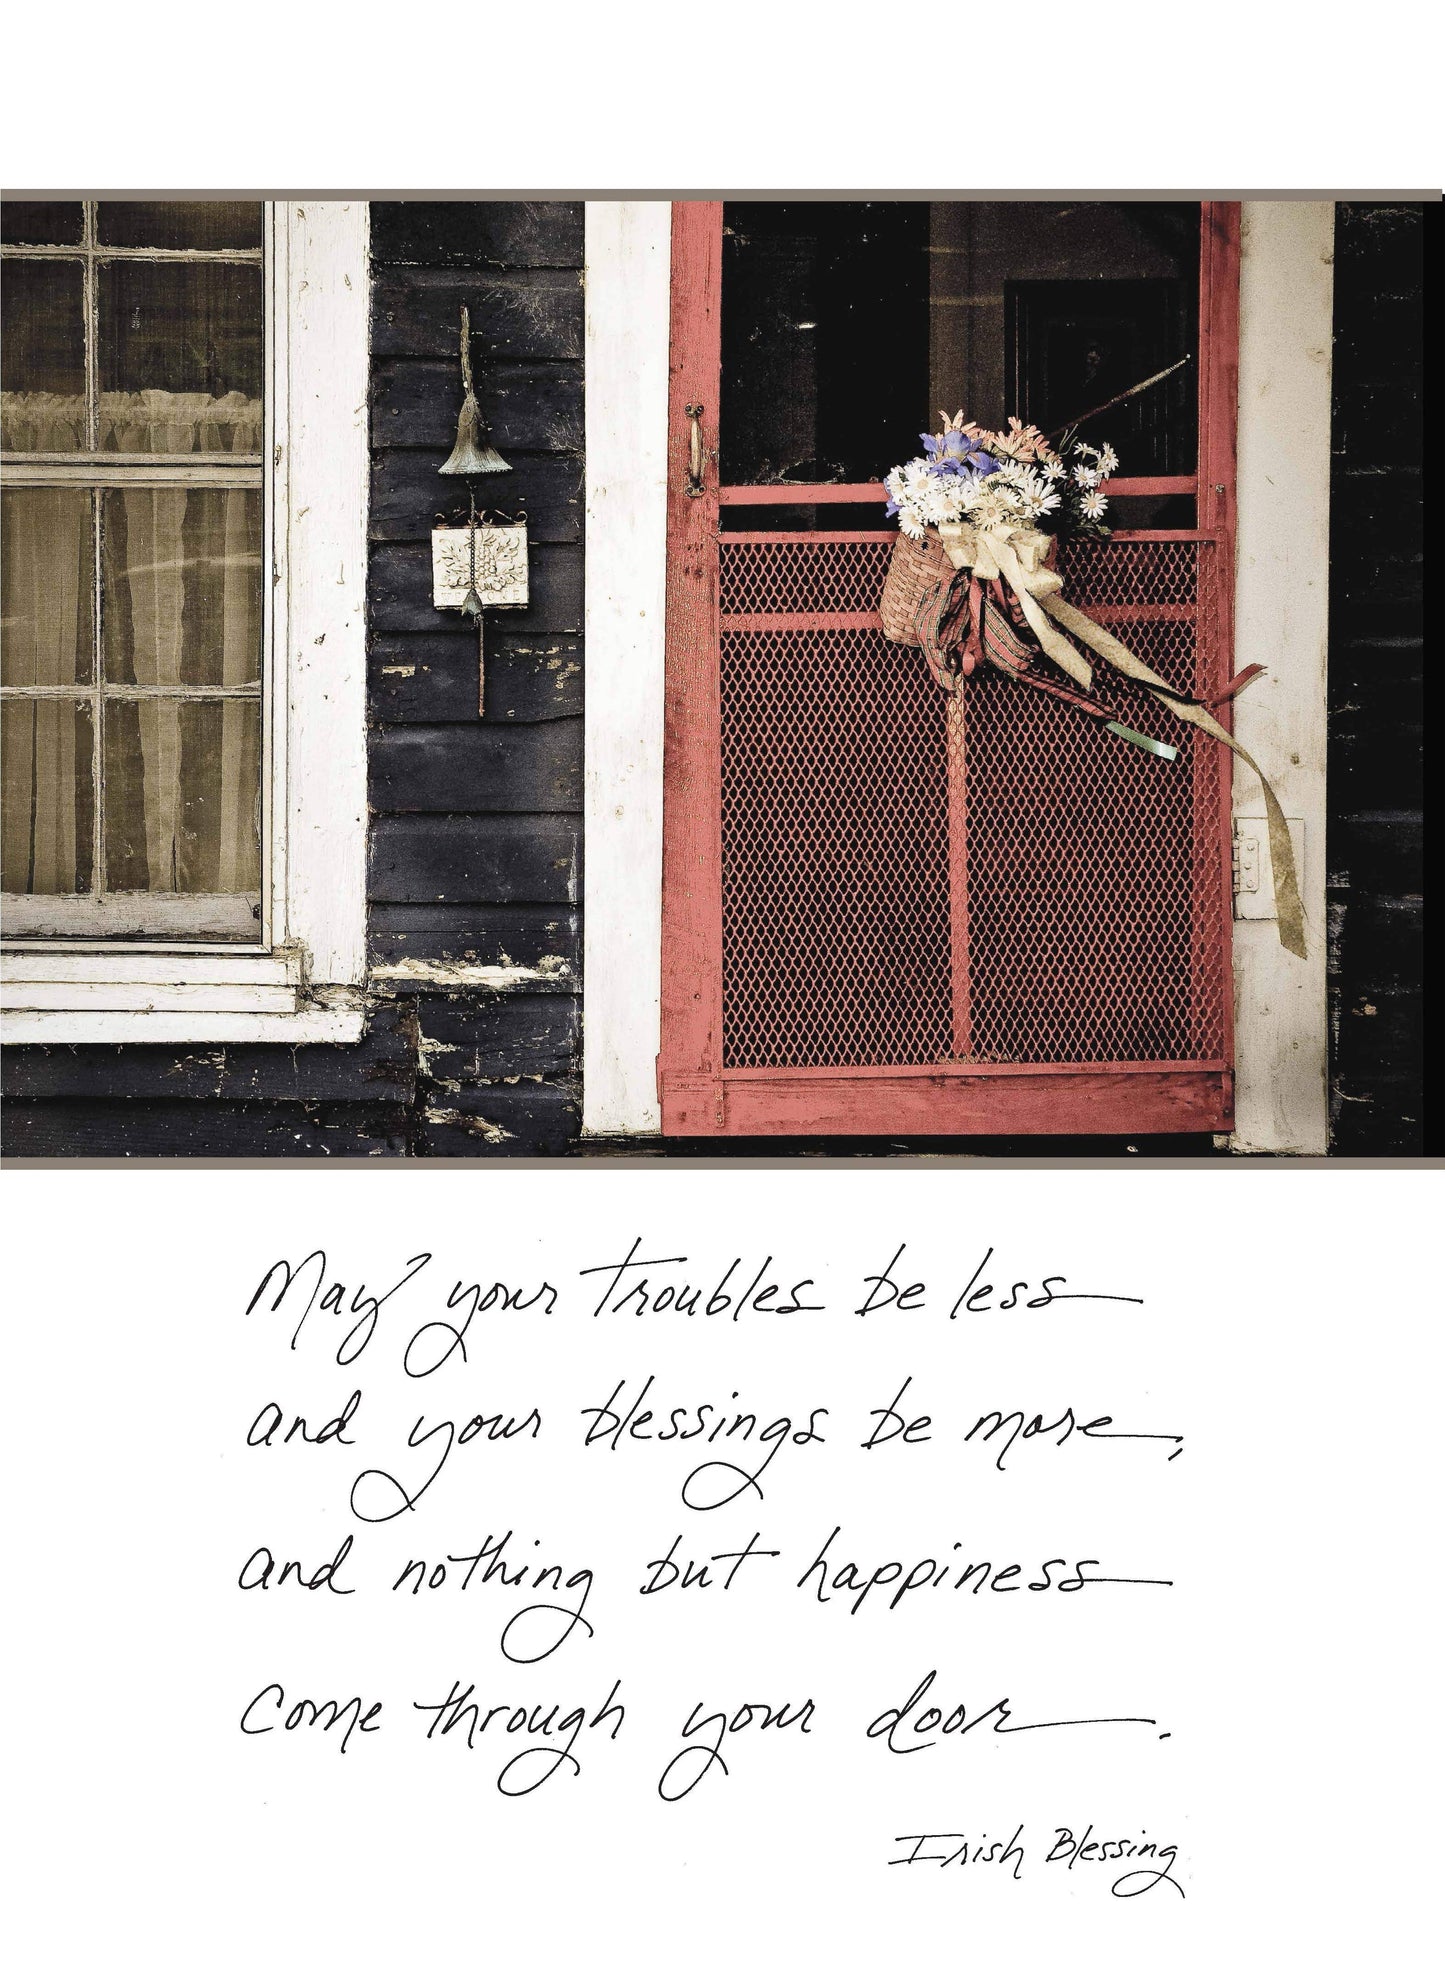 WELCOME
May your troubles be less
and your blessings be more,
and nothing but happiness
come through your door.
Irish Blessing